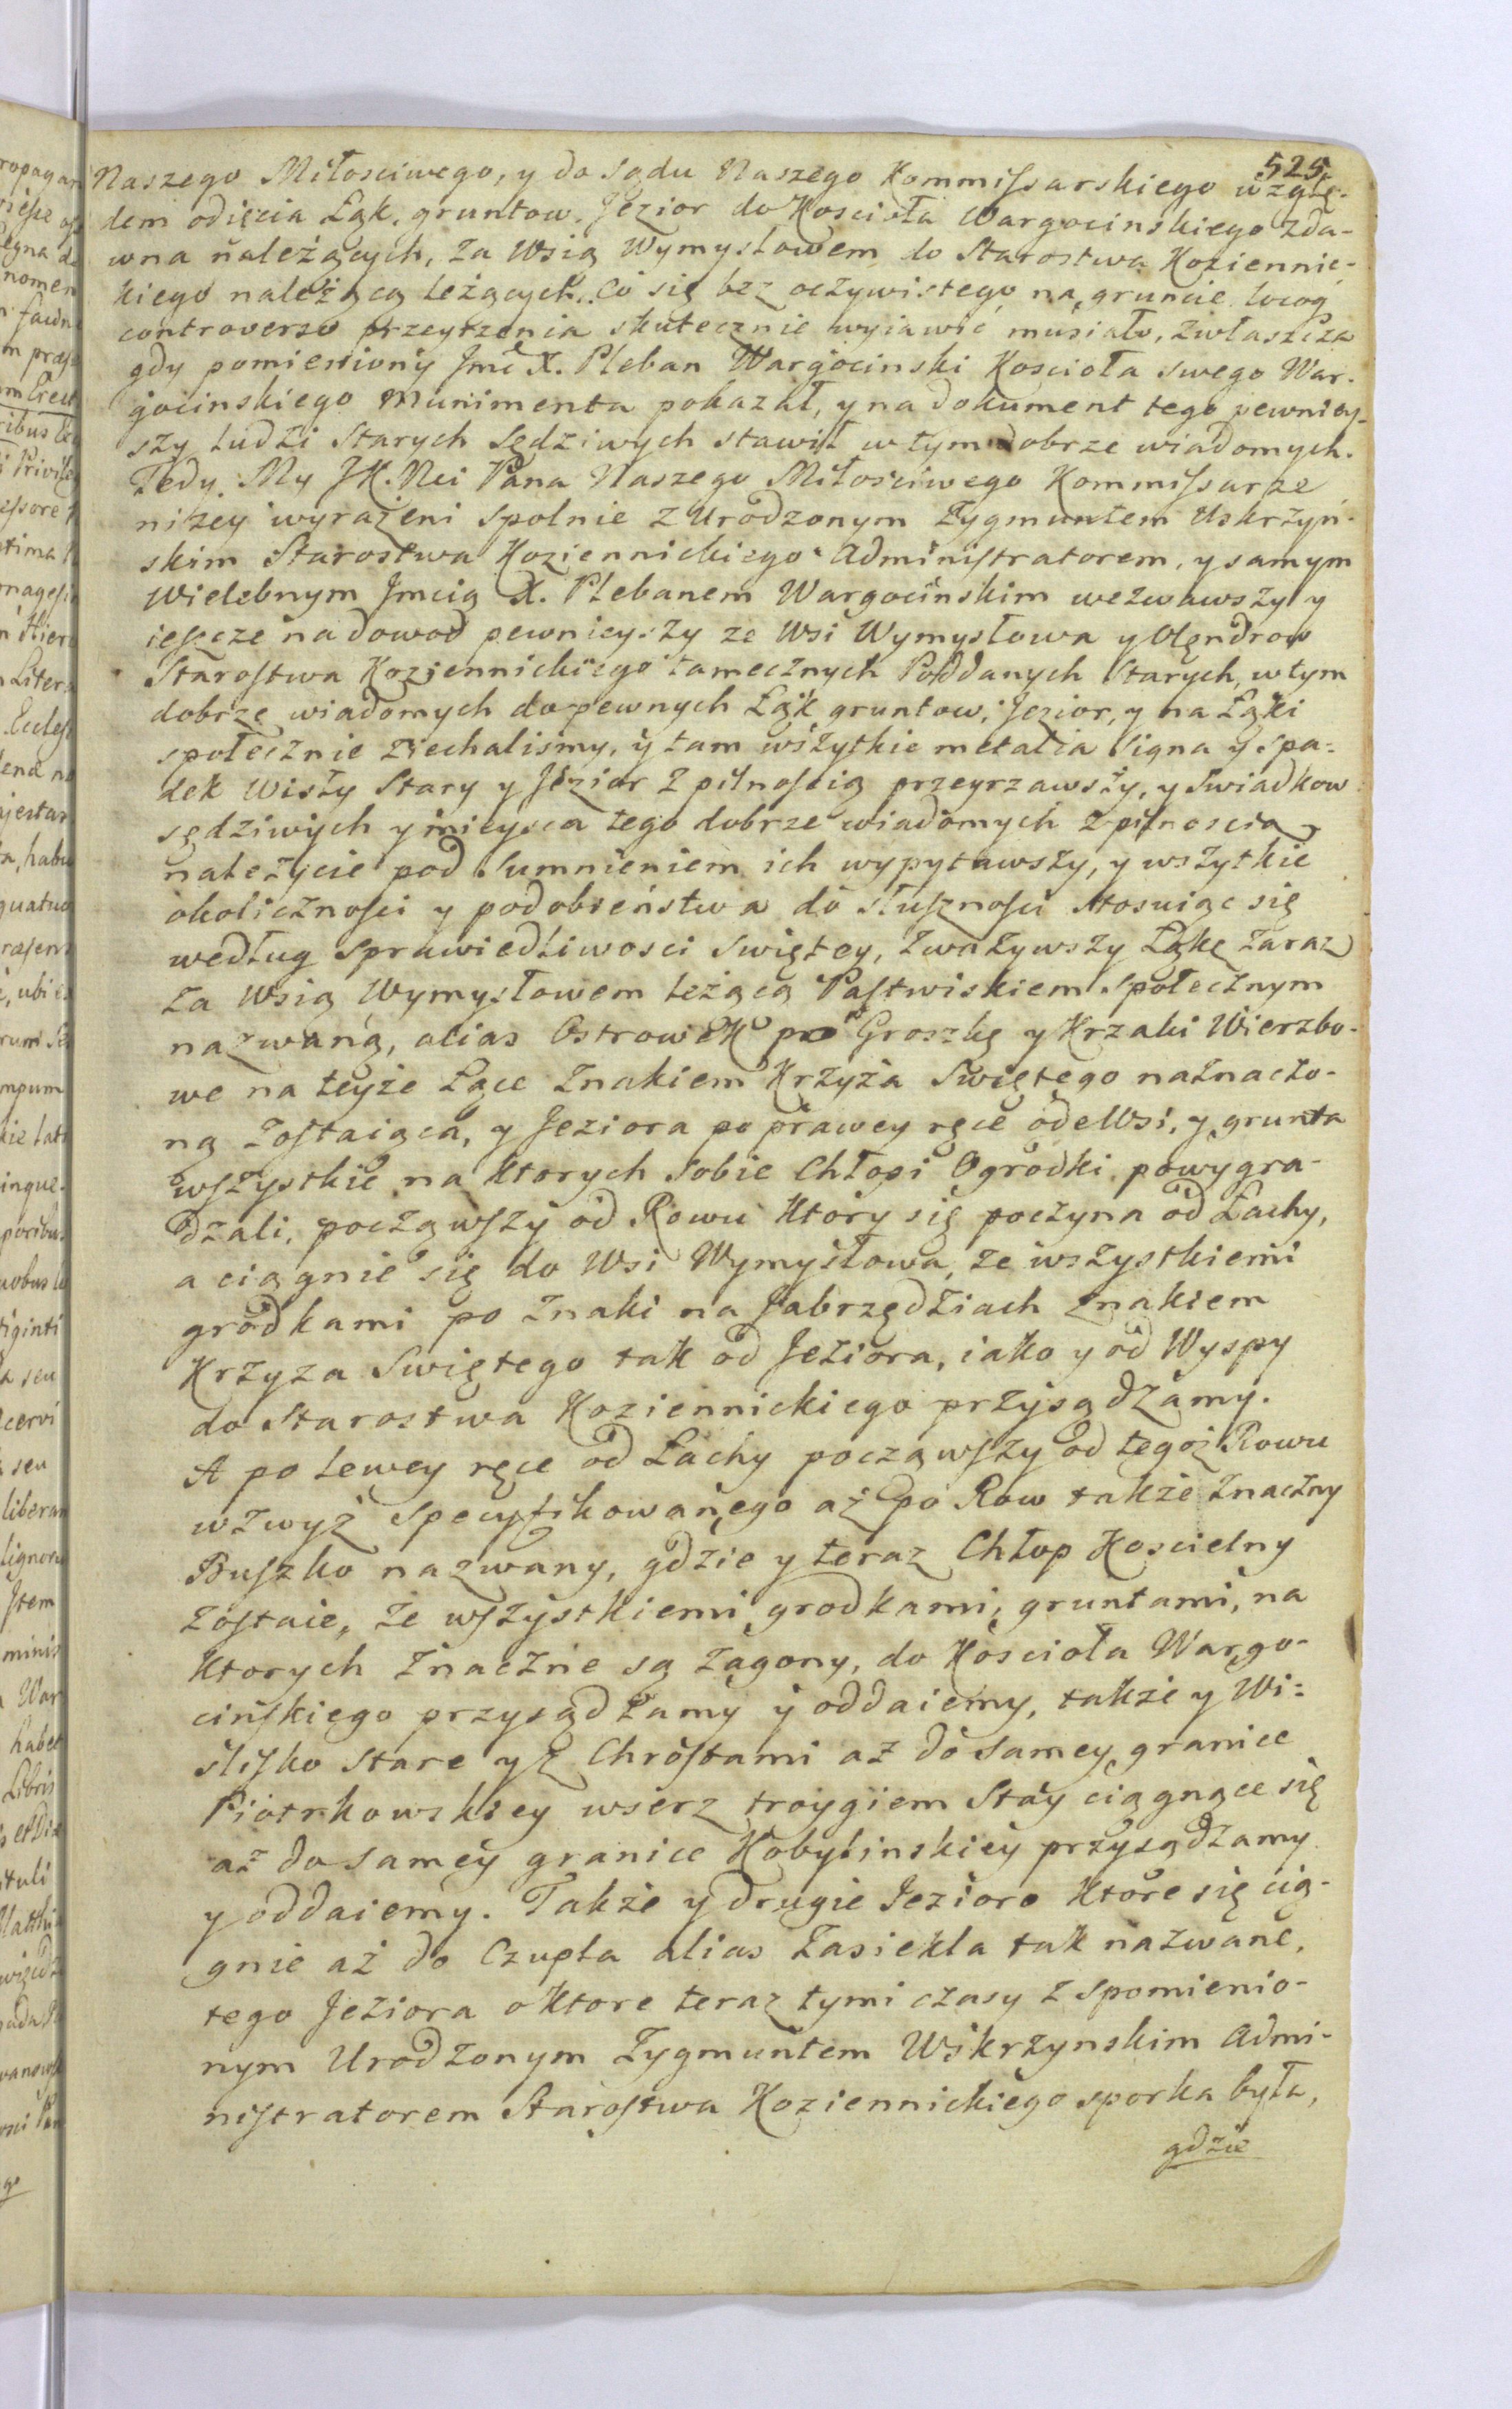 525
Naszego Miłosciwego, y do Sądu Naszego Kommissarskiego wzglę-
dem odięcia Łąk, gruntow, Jezior do Koscioła Wargocinskiego zda-
wna należących, za Wsią Wymysłowem do Starostwa Koziennic-
kiego należącą leżących. Co się bez oczywistego na gruncie
controverso przeyrzenia skutecznie wyiawić musiało, zwłaszcza
gdy pomieniony Jmć X. Pleban Wargocinski Koscioła swego War-
gocinskiego Munimenta pokazał, y na dokument tego pewniey-
szy ludzi Starych Sędziwych stawił w tym dobrze wiadomych.
Tedy My JK. Mci Pana Naszego Miłosciwego Kommissarze
niżey wyrażeni spolnie z Urodzonym Zygmuntem Uskrzyn-
skim Starostwa Koziennickiego Administratorem, y samym
Wielebnym Jmcią X. Plebanem Wargocinskim wezwawszy y
ieszcze na dowod pewnieyszy ze Wsi Wymysłowa y Olędrow
Starostwa Koziennickiego tamecznych Poddanych Starych, w tym
dobrze wiadomych do pewnych Łąk, gruntow, Jezior, y na Łąki
społecznie ziechalismy, y tam wszytkie metalia Signa y Spa-
dek Wisły Stary y Jezior z pilnoscią przeyrzawszy, y Swiadkow
sędziwych y mieysca tego dobrze wiadomych z pilnoscią
należycie pod Sumnieniem ich wypytawszy, y wszytkie
okolicznosci y podobieństwa do słusznosci stosuiąc się
według sprawiedliwosci swiętey, zważywszy Łąkę zaraz
za Wsią Wymysłowem leżącą Pastwiskiem Społecznym
nazwaną, alias Ostrowek po Groszkę y Krzaki Wierzbo-
we na teyże Łące Znakiem Krzyża Swiętego naznaczo-
ną zostaiąca, y Jeziora po prawey ręce ode Wsi, y grunta
wszystkie na ktorych sobie Chłopi Ogrodki powygra-
dzali, począwszy od Rowu ktory się poczyna od Łachy,
a ciągnie się do Wsi Wymysłowa, ze wszystkiemi
grodkami po znaki na Jabrzędziach znakiem
Krzyza Swiętego tak od Jeziora, iako y od Wyspy
do Starostwa Koziennickiego przysądzamy.
A po lewey ręce od Łachy począwszy od tegoż Rowu
wzwyż specyfikowanego aż po Row także znaczny
Buszko nazwany, gdzie y teraz Chłop Koscielny
zostaie, ze wszystkiemi grodkami, gruntami, na
ktorych znaczne są zagony, do Koscioła Wargo-
cinskiego przysądzamy y oddaiemy, także y Wi-
slisko stare y z Chrostami aż do samey granice
Piotrkowskiey wszerz troygiem Stay ciągnące się
aż do samey granice Kobylinskiey przysądzamy
y oddaiemy. Także y drugie Jezioro ktore się cią-
gnie aż do Czupla alias Zasiekla tak nazwane,
tego Jeziora o ktore teraz tymi czasy z spomienio-
nym Urodzonym Zygmuntem Wskrzynskim Admi-
nistratorem Starostwa Koziennickiego sporka była,
gdzie